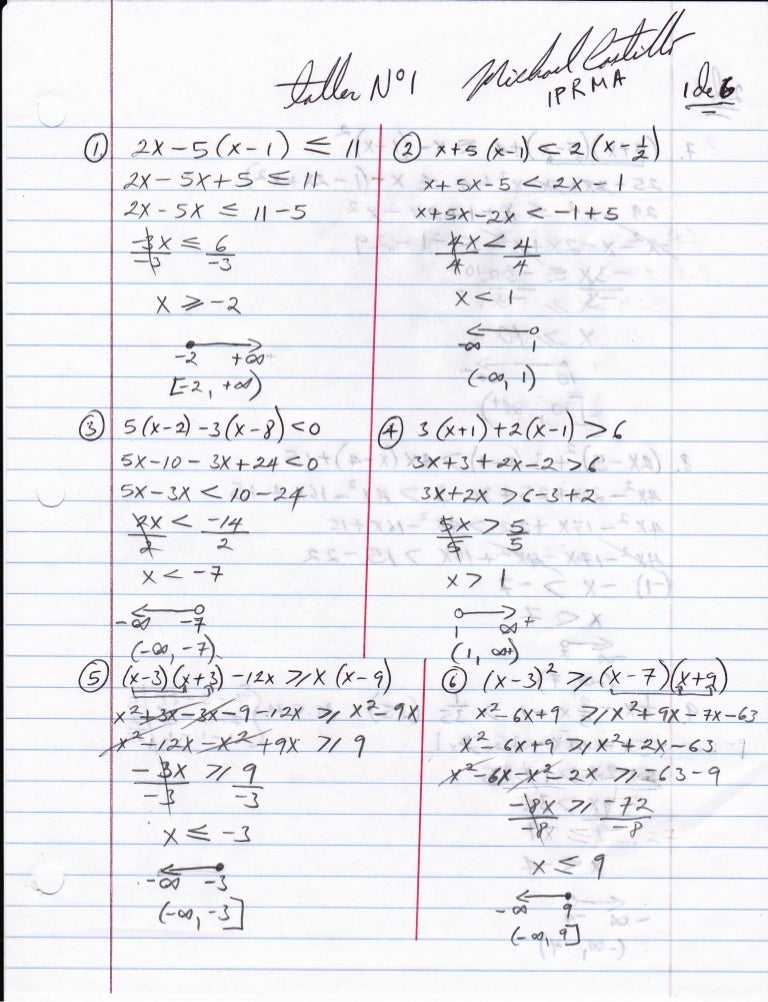 taller Nº1 Michael Castillo
IPRMA 1 de 6
① 2x - 5(x-1) ≤ 11
2x - 5x + 5 ≤ 11
2x - 5x ≤ 11 - 5
-3x/-3 ≤ 6/-3
x ≥ -2
-2 +∞
[-2, +∞)
② x+5(x-1) < 2(x-1/2)
x+5x-5 < 2x-1
x+5x-2x < -1+5
4x/4 < 4/4
x < 1
-∞ 1
(-∞, 1)
③ 5(x-2)-3(x-8) < 0
5x-10-3x+24 < 0
5x-3x < 10-24
2x/2 < -14/2
x < -7
-∞ -7
(-∞, -7)
④ 3(x+1)+2(x-1) > 6
3x+3+2x-2 > 6
3x+2x > 6-3+2
5x/5 > 5/5
x > 1
1 ∞+
(1, ∞+)
⑤ (x-3)(x+3)-12x ≥ x(x-9)
x²+3x-3x-9-12x ≥ x²-9x
x²-12x-x²+9x ≥ 9
-3x/-3 ≥ 9/-3
x ≤ -3
-∞ -3
(-∞, -3]
⑥ (x-3)² ≥ (x-7)(x+9)
x²-6x+9 ≥ x²+9x-7x-63
x²-6x+9 ≥ x²+2x-63
x²-6x-x²-2x ≥ -63-9
-8x/-8 ≥ -72/-8
x ≤ 9
-∞ 9
(-∞, 9]